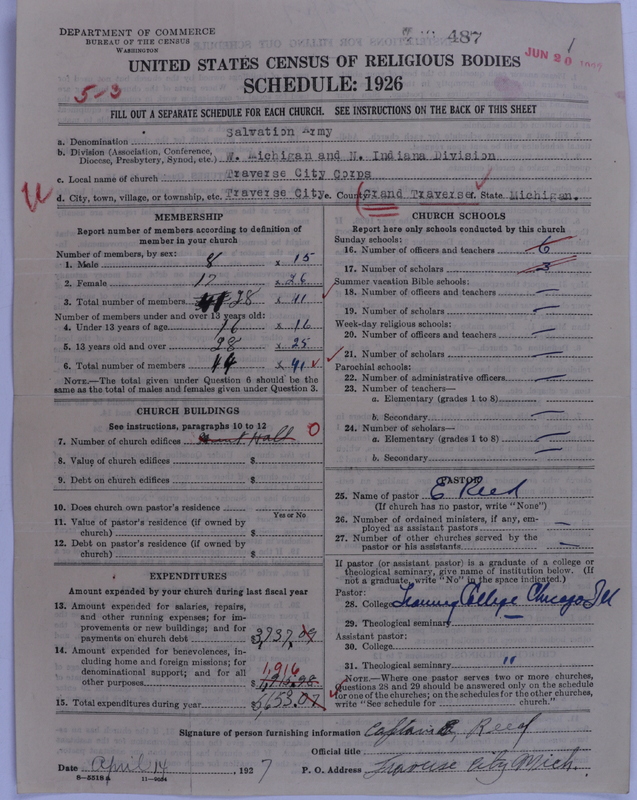 DEPARTMENT OF COMMERCE
BUREAU OF THE CENSUS
WASHINGTON
487
JUN 20
1
UNITED STATES CENSUS OF RELIGIOUS BODIES
SCHEDULE: 1926
5-3
FILL OUT A SEPARATE SCHEDULE FOR EACH CHURCH. SEE INSTRUCTIONS ON THE BACK OF THIS SHEET
a. Denomination Salvation Army
b. Division (Association, Conference, Diocese, Presbytery, Synod, etc.) W. Michigan and N. Indiana Division
c. Local name of church Traverse City Corps
d. City, town, village, or township, etc. Traverse City e. County Grand Traverse f. State Michigan.
MEMBERSHIP
Report number of members according to definition of
member in your church
Number of members, by sex:
1. Male 8 x 15
2. Female 17 x 26
3. Total number of members 28 x 41
Number of members under and over 13 years old:
4. Under 13 years of age 16 x 16
5. 13 years old and over 28 x 25
6. Total number of members 44 x 41
NOTE.—The total given under Question 6 should be the
same as the total of males and females given under Question 3.
CHURCH BUILDINGS
See instructions, paragraphs 10 to 12
7. Number of church edifices Hall 0
8. Value of church edifices $
9. Debt on church edifices $
10. Does church own pastor's residence
Yes or No
11. Value of pastor's residence (if owned by
church) $
12. Debt on pastor's residence (if owned by
church) $
EXPENDITURES
Amount expended by your church during last fiscal year
13. Amount expended for salaries, repairs,
and other running expenses; for im-
provements or new buildings; and for
payments on church debt $3,737.09
14. Amount expended for benevolences, in-
cluding home and foreign missions; for
denominational support; and for all
1,916
other purposes $1,915.98
15. Total expenditures during year $5,653.07
CHURCH SCHOOLS
Report here only schools conducted by this church
Sunday schools:
16. Number of officers and teachers 6
17. Number of scholars 3
Summer vacation Bible schools:
18. Number of officers and teachers —
19. Number of scholars —
Week-day religious schools:
20. Number of officers and teachers —
21. Number of scholars —
Parochial schools:
22. Number of administrative officers —
23. Number of teachers—
a. Elementary (grades 1 to 8) —
b. Secondary —
24. Number of scholars—
a. Elementary (grades 1 to 8) —
b. Secondary —
PASTOR
25. Name of pastor E. Reed
(If church has no pastor, write "None")
26. Number of ordained ministers, if any, em-
ployed as assistant pastors —
27. Number of other churches served by the
pastor or his assistants —
If pastor (or assistant pastor) is a graduate of a college or
theological seminary, give name of institution below. (If
not a graduate, write "No" in the space indicated.)
Pastor:
28. College Training College Chicago Ill
29. Theological seminary —
Assistant pastor:
30. College
31. Theological seminary "
NOTE.—Where one pastor serves two or more churches,
Questions 28 and 29 should be answered only on the schedule
for one of the churches; on the schedules for the other churches,
write "See schedule for church."
Signature of person furnishing information Captain E. Reed
Official title
Date April 14, 1927 P. O. Address Traverse City Mich.
8-5518a 11-9084